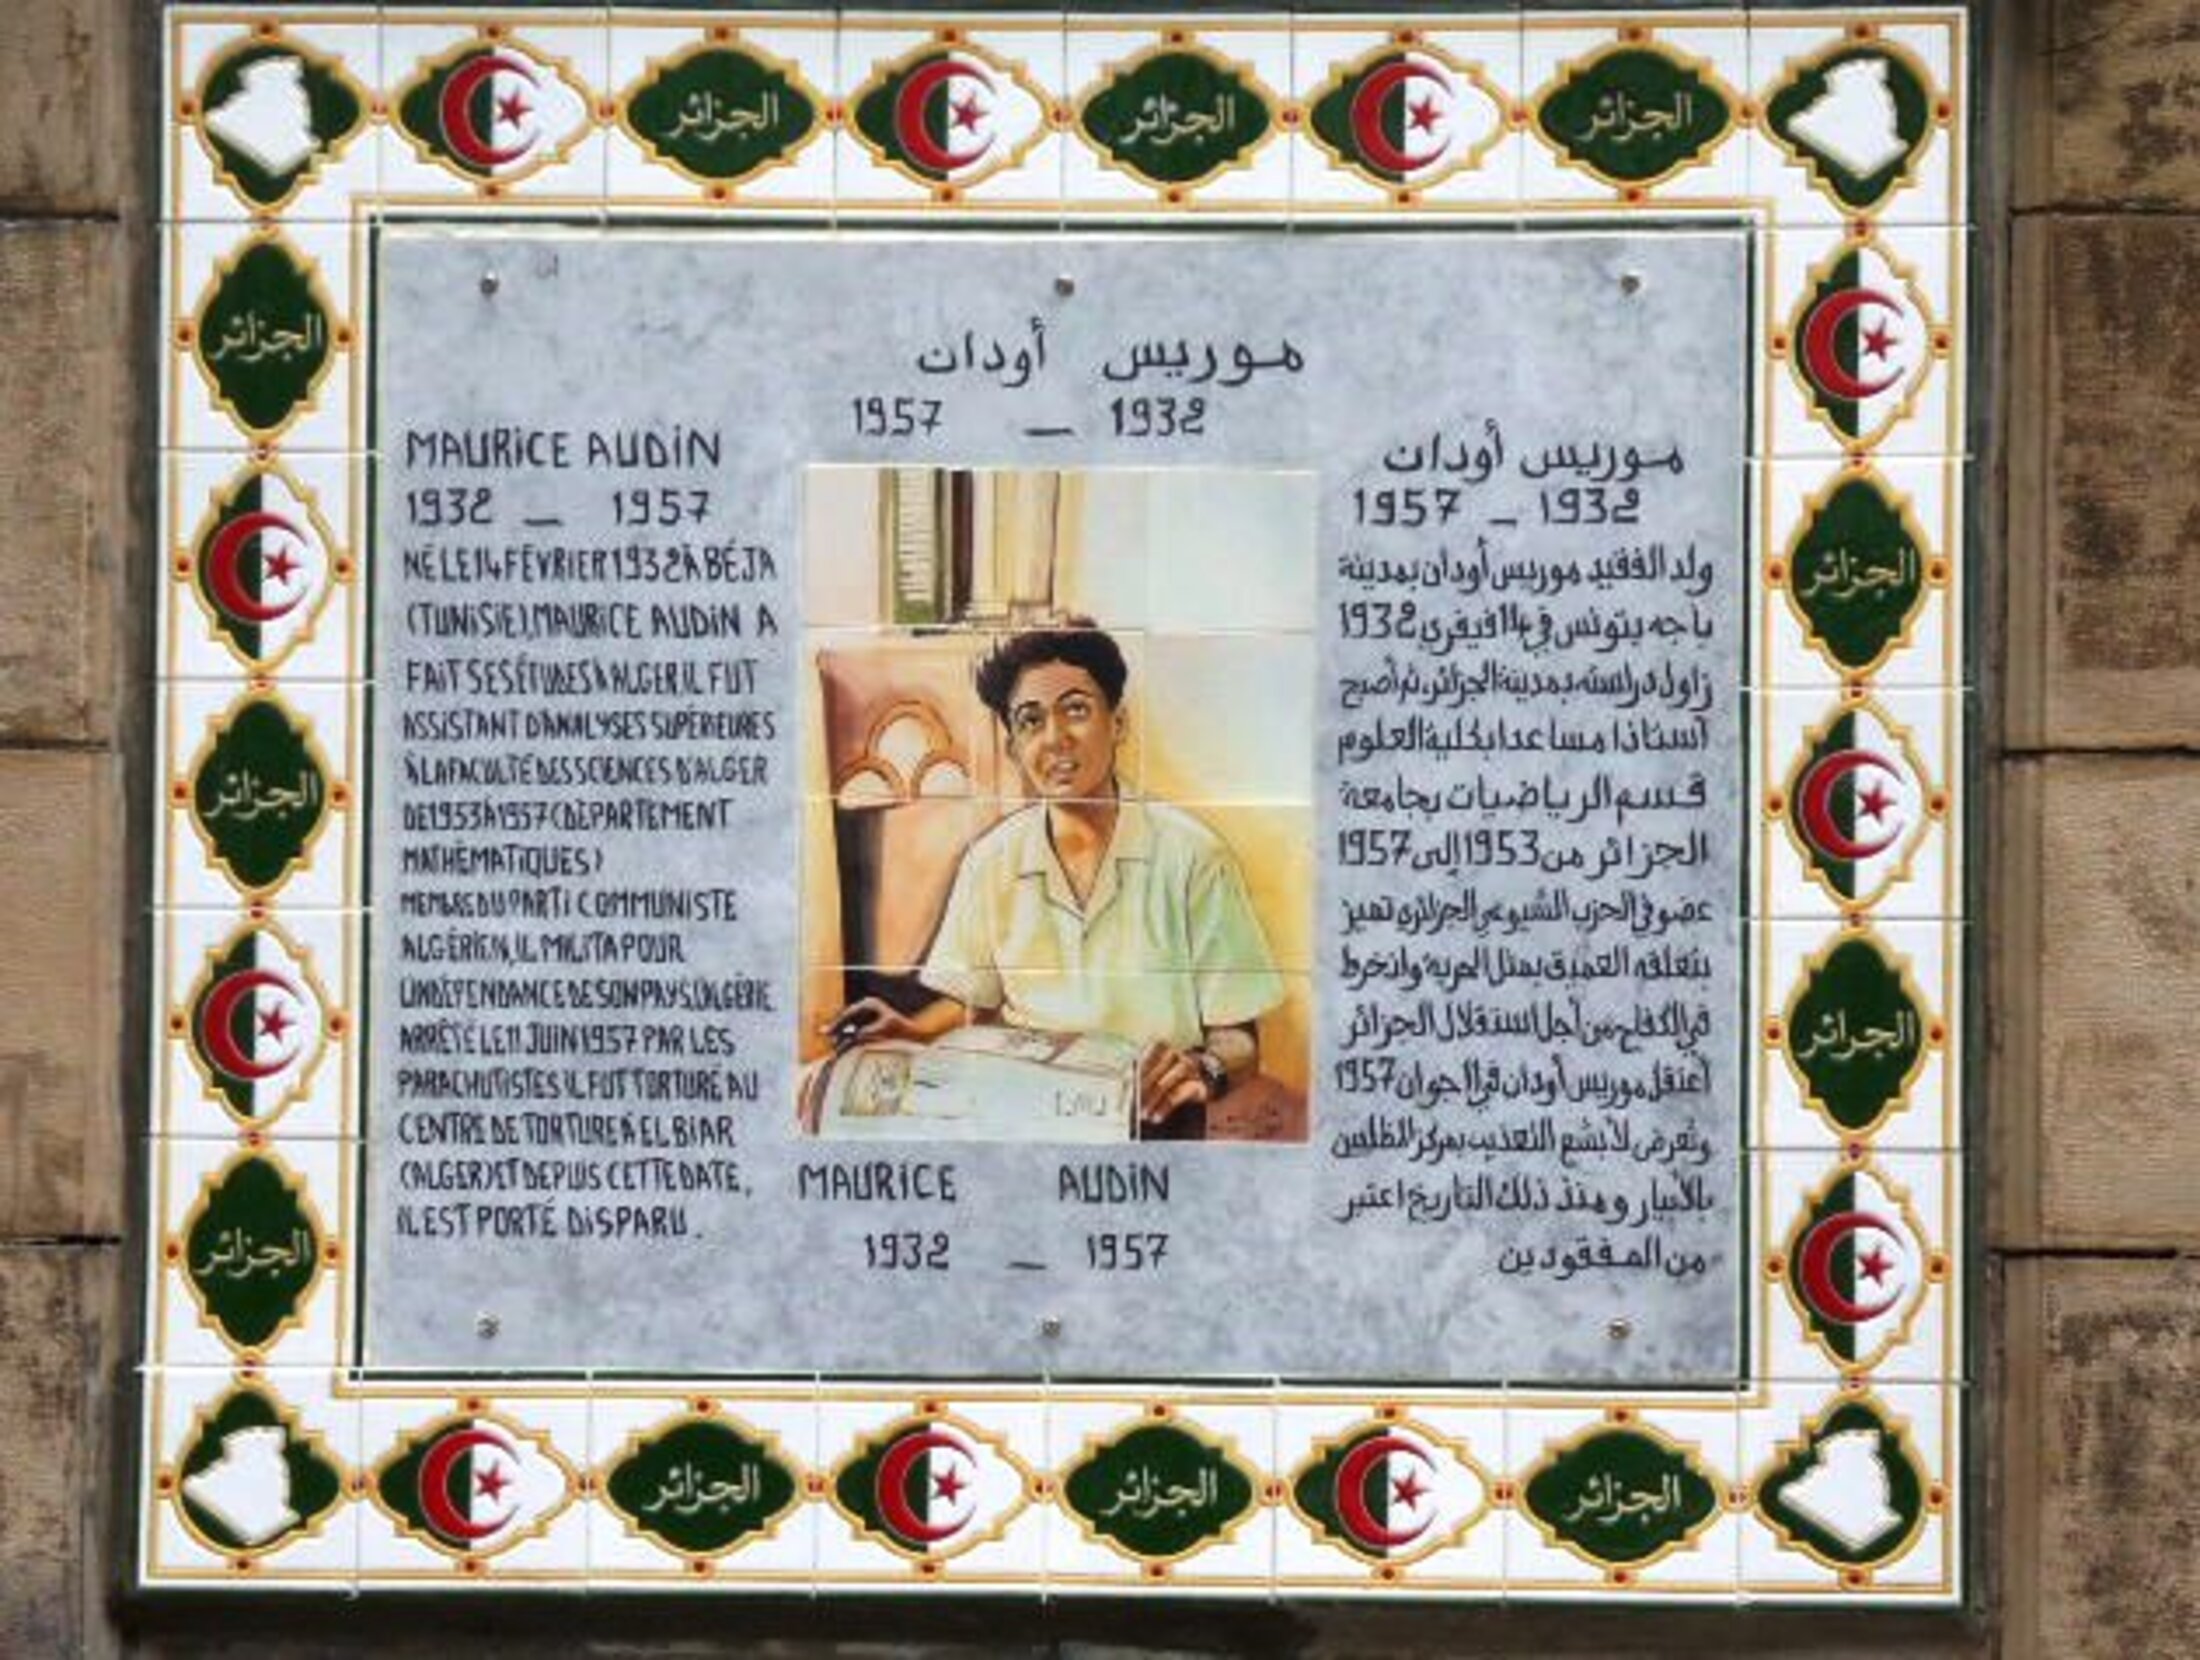 الجزائر
الجزائر
الجزائر
موريس أودان
1932 _ 1957
MAURICE AUDIN
1932 _ 1957
NÉ LE 14 FÉVRIER 1932 À BÉJA
(TUNISIE), MAURICE AUDIN A
FAIT SES ÉTUDES À ALGER, IL FUT
ASSISTANT D'ANALYSES SUPÉRIEURES
À LA FACULTÉ DES SCIENCES D'ALGER
DE 1953 À 1957 (DÉPARTEMENT
MATHÉMATIQUES)
MEMBRE DU PARTI COMMUNISTE
ALGÉRIEN, IL MILITA POUR
L'INDÉPENDANCE DE SON PAYS, L'ALGÉRIE
ARRÊTÉ LE 11 JUIN 1957 PAR LES
PARACHUTISTES IL FUT TORTURÉ AU
CENTRE DE TORTURE À EL BIAR
(ALGER) ET DEPUIS CETTE DATE,
IL EST PORTÉ DISPARU.
MAURICE AUDIN
1932 _ 1957
موريس أودان
1932 _ 1957
ولد الفقيد موريس أودان بمدينة
باجه بتونس في 14 فيفري 1932
زاول دراسته بمدينة الجزائر، ثم أصبح
أستاذا مساعدا بكلية العلوم
قسم الرياضيات بجامعة
الجزائر من 1953 إلى 1957
عضو في الحزب الشيوعي الجزائري تميز
بتعلقه العميق بمثل الحرية وانخرط
في الكفاح من أجل استقلال الجزائر
أعتقل موريس أودان في 11 جوان 1957
وتعرض لأبشع التعذيب بمركز المظليين
بالأبيار ومنذ ذلك التاريخ اعتبر
من المفقودين
الجزائر
الجزائر
الجزائر
الجزائر
الجزائر
الجزائر
الجزائر
الجزائر
الجزائر